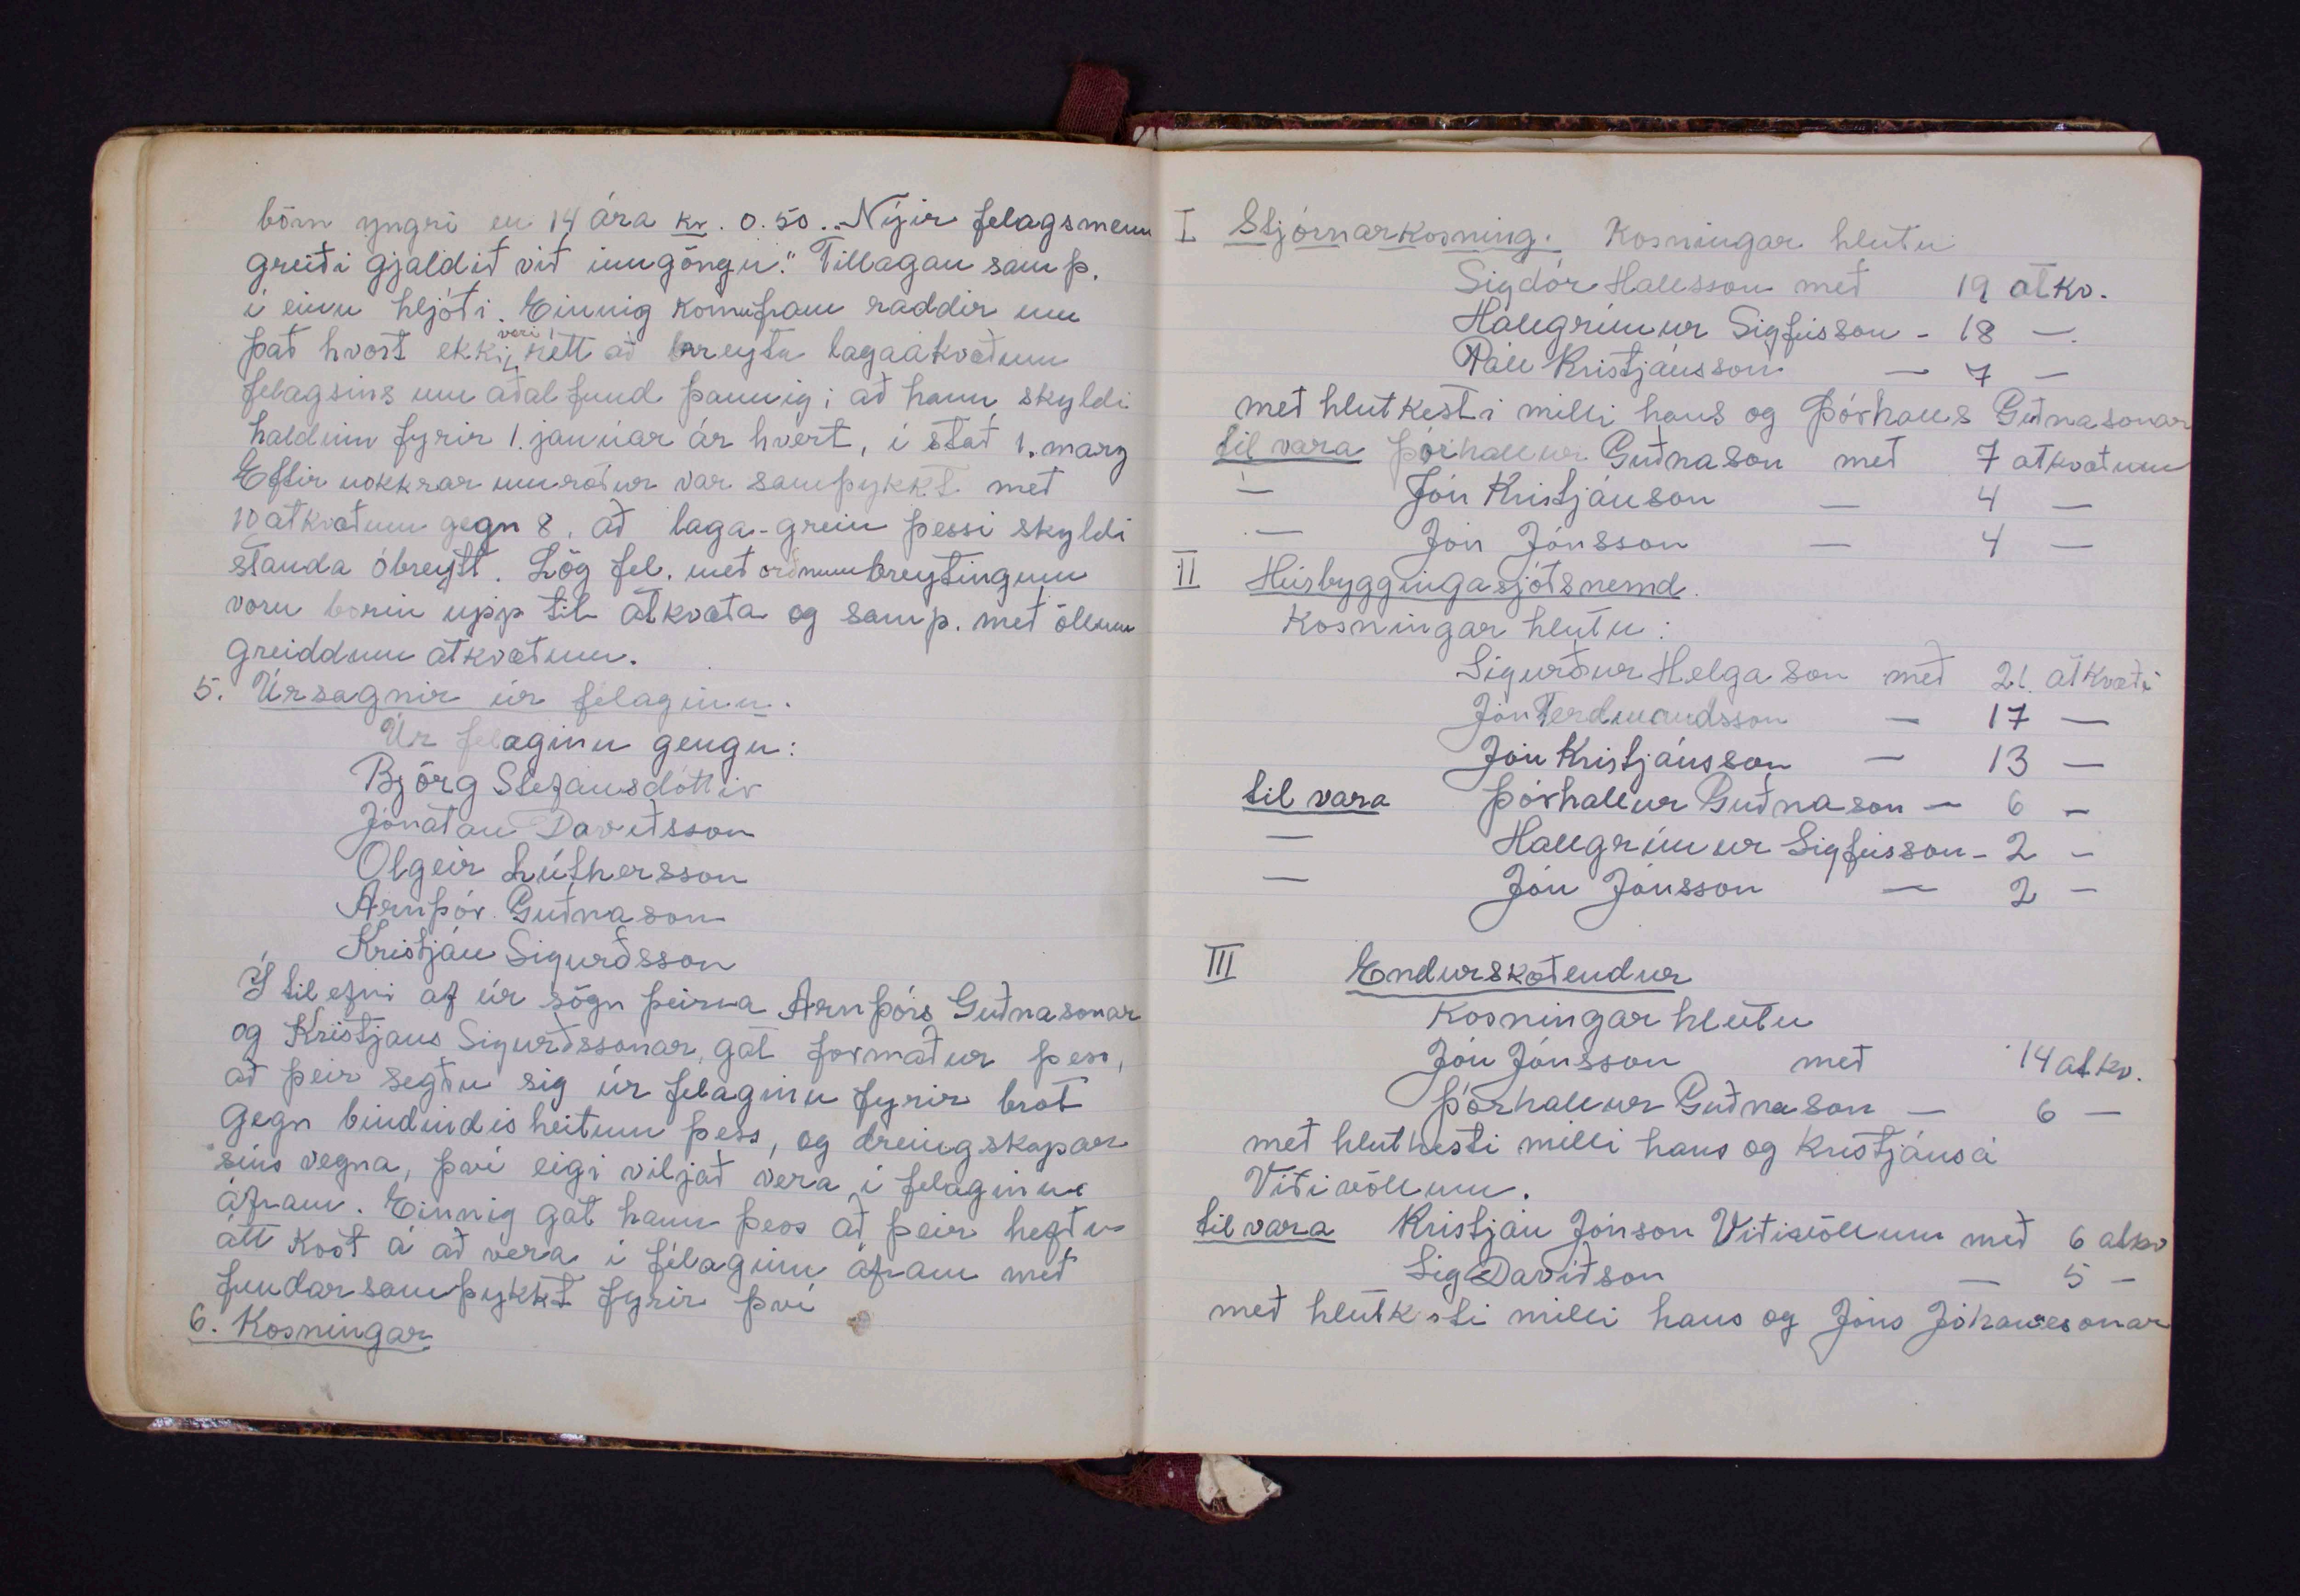 börn yngri en 14 ára kr. 0.50.. Nýir felagsmenn
greiði gjaldið við inngöngu." Tillagan samþ.
í einu hljóði. Einnig komu fram raddir um
það hvort ekki veri rétt að breyta lagaákvæðum
felagsins um aðalfund þannig; að hann skyldi
haldinn fyrir 1. janúar ár hvert, í stað 1. marz
Eftir nokkrar umræður var samþykkt með
10 atkvæðum gegn 8, að laga-grein þessi skyldi
standa óbreytt. Lög fel. með orðnum breytingum
voru borin upp til atkvæða og samþ. með öllum
greiddum atkvæðum.
5. Úrsagnir úr felaginu.
Úr felaginu gengu:
Björg Stefansdóttir
Jónatan Daviðsson
Olgeir Lúthersson
Arnþór Guðnason
Kristján Sigurðsson
Í tilefni af úrsögn þeirra Arnþórs Guðnasonar
og Kristjans Sigurðssonar, gat formaður þess,
að þeir segðu sig úr felaginu fyrir brot
gegn bindindisheitum þess, og drengskapar
síns vegna, því eigi viljað vera í felaginu
áfram. Einnig gat hann þess að þeir hefðu
átt kost á að vera í félaginu áfram með
fundarsamþykkt fyrir því
6. Kosningar
I Stjórnarkosning. Kosningar hlutu
Sigdór Hallsson með 19 atkv.
Hallgrímur Sigfússon - 18 —.
Páll Kristjánsson — 7 —
með hlutkesti milli hans og Þórhalls Guðnasonar
til vara Þórhallur Guðnason með 7 atkvæðum
— Jón Kristjánson — 4 —
— Jón Jónsson — 4 —
II Húsbyggingasjóðsnemd.
Kosningar hlutu:
Sigurður Helgason með 21 atkvæði
Jón Ferdinandsson — 17 —
Jón Kristjánsson — 13 —
til vara Þórhallur Guðnason — 6 —
— Hallgrímur Sigfússon - 2 —
— Jón Jónsson — 2 —
III Endurskoðendur
Kosningar hlutu
Jón Jónsson með 14 atkv.
Þórhallur Guðnason — 6 —
með hluthesti milli hans og Kristjáns á
Viðivöllum.
til vara Kristján Jónson Viðivöllum með 6 atkv
Sig Daviðson — 5 —
með hlutkesti milli hans og Jóns Jóhannesonar